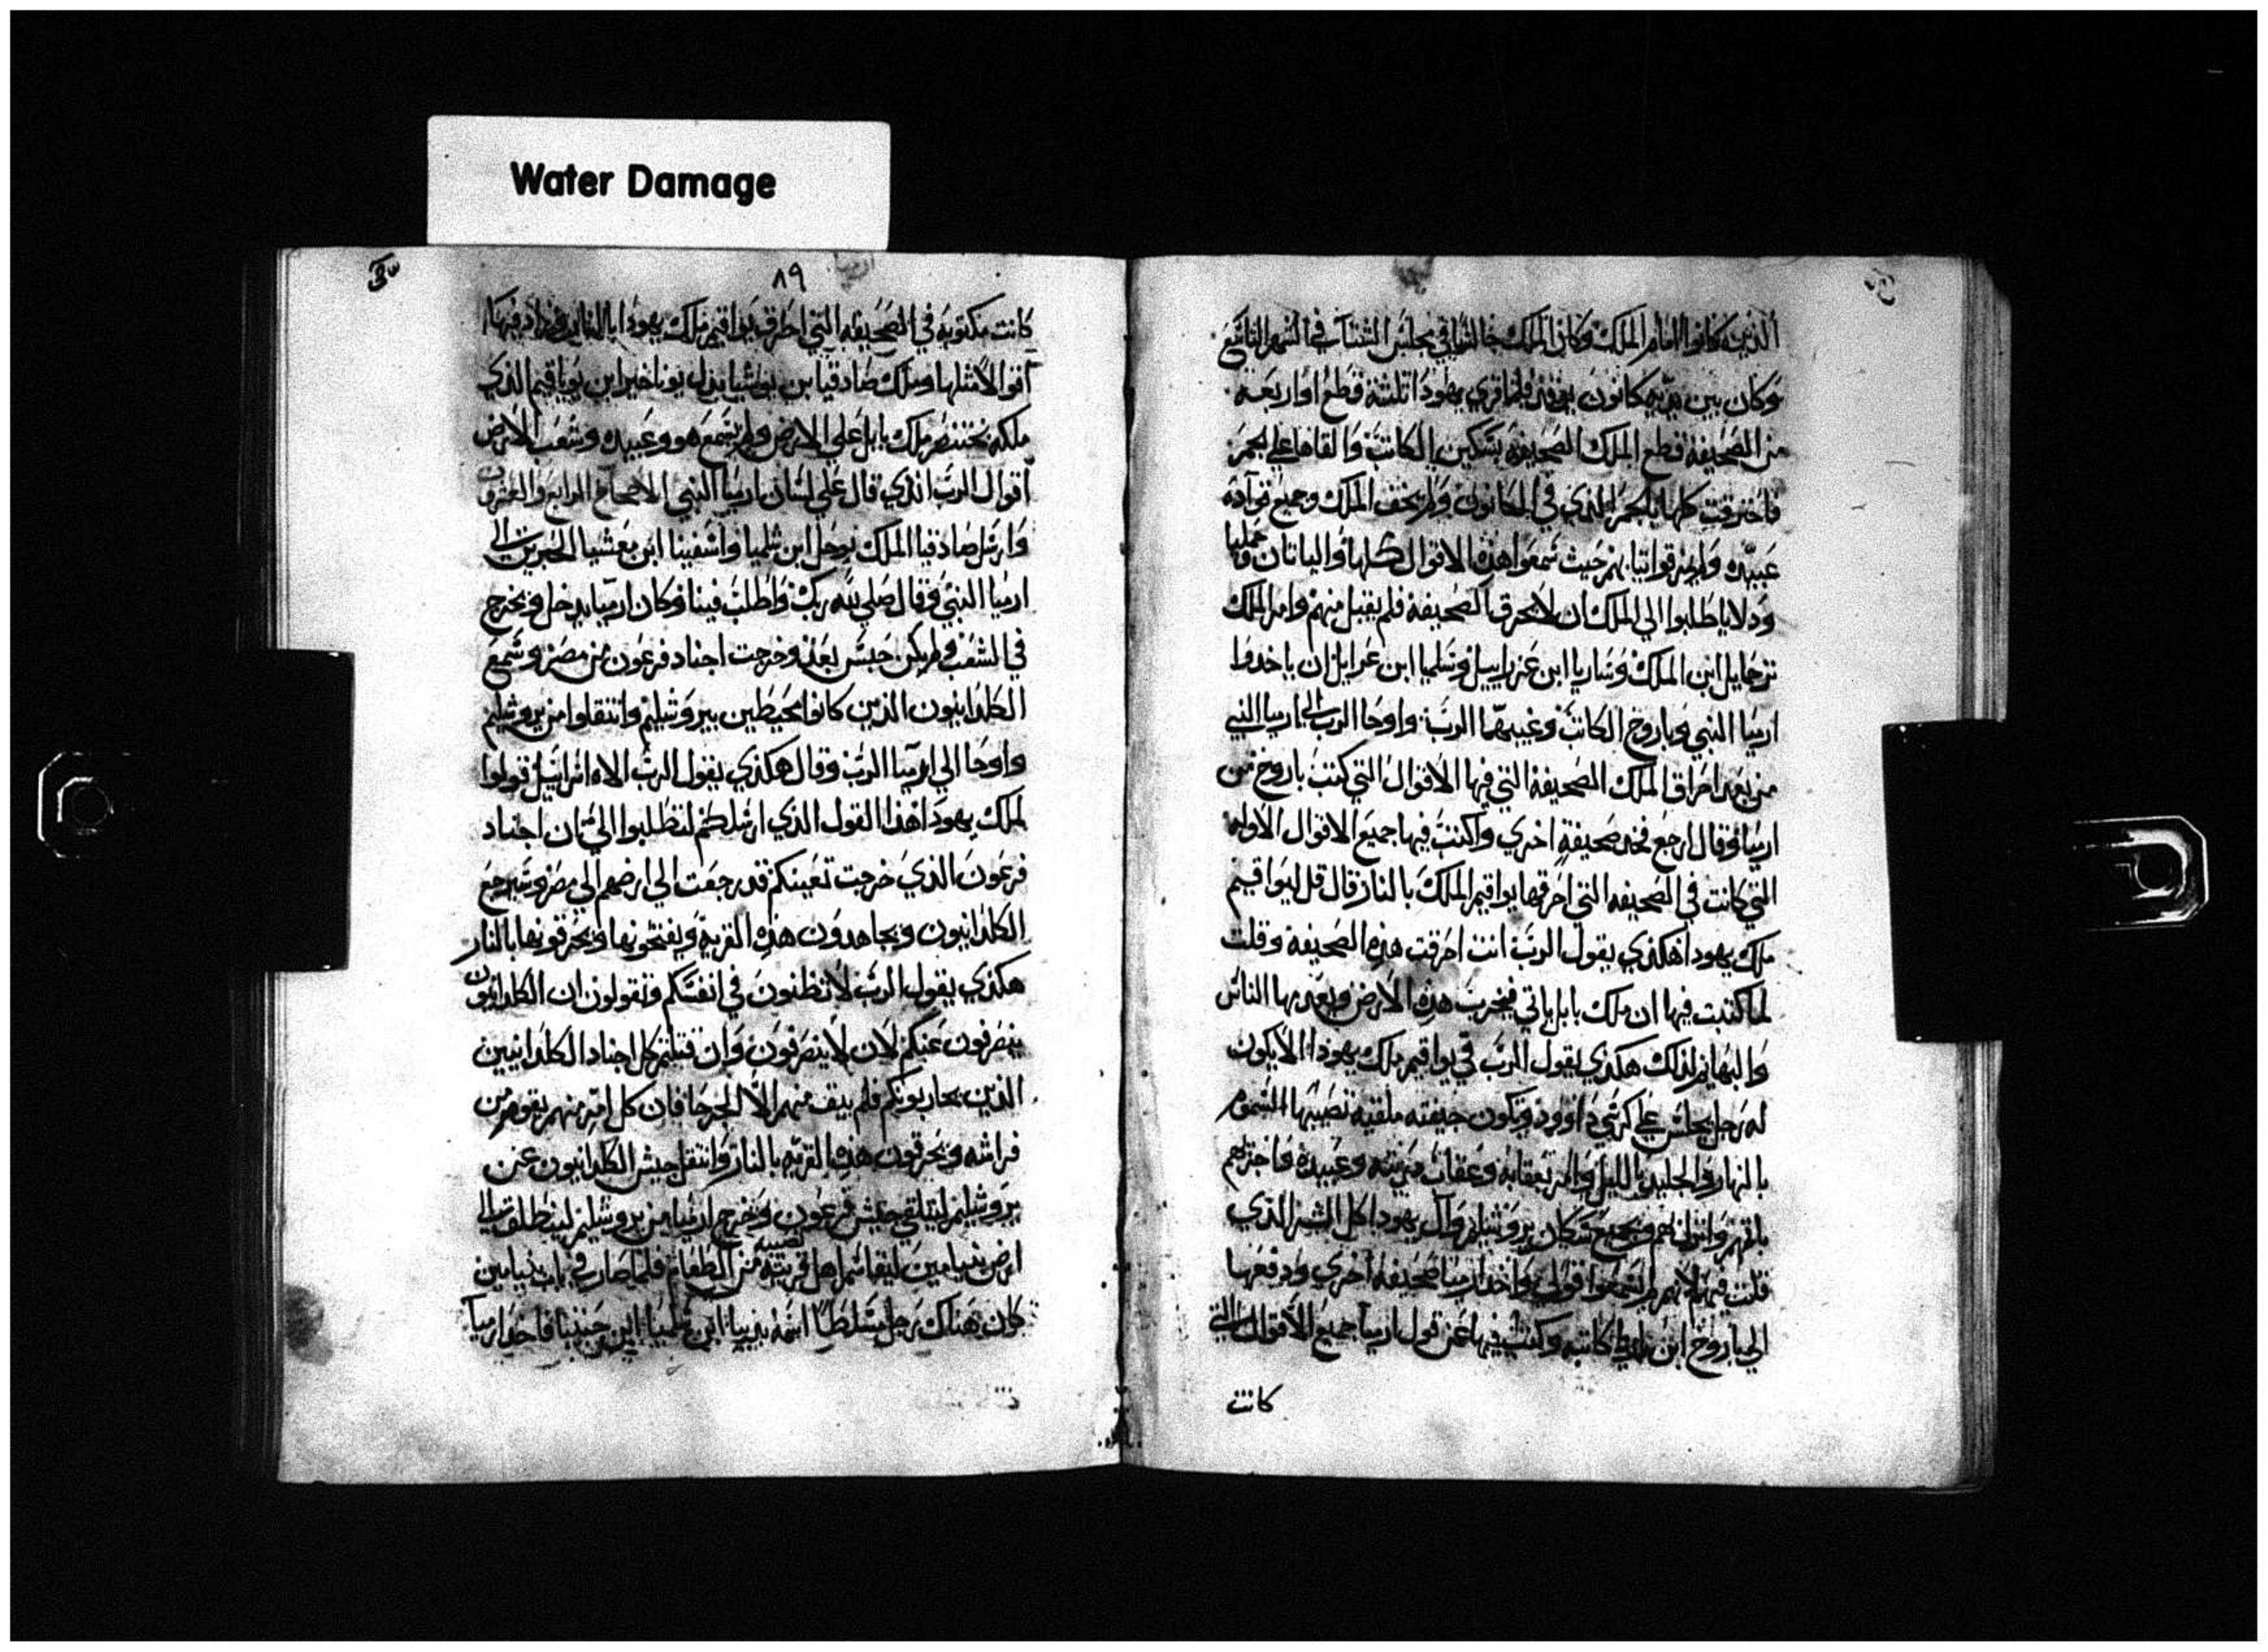 Water Damage
الذين كانوا امام الملك وكان الملك جالسًا في مجلس الشتآ في الشهر التاسع
وكان بين يديه كانون يوقد فلما قري يهودا تلتة قطع او اربعه
من الصحيفة قطع الملك الصحيفة بسكين الكاتب والقاها علي الجمر
فاحترقت كلها بالجمر الذي في الكانون ولم يخف الملك وجميع قوآده
عبيده ولم يخرقوا تيابهم حيث سمعوا هذه الاقوال كلها واليا ناتان
ودلايا طلبوا الي الملك ان لا يحرق الصحيفة فلم يقبل منهم وامر الملك
ابن الملك وساريا ابن عزراييل وسلميا ابن ان ياخدوا
ارميا النبي وباروخ الكاتب وغيبهما الرب واوحا الرب الى ارميا النبي
من بعد احراق الملك الصحيفة التي فيها الاقوال التي كتب باروخ من
ارميا وقال ارجع فخد صحيفة اخري واكتب فيها جميع الاقوال الاوله
التي كانت في الصحيفه التي احرقها يواقيم الملك بالنار قال قل ليواقيم
ملك يهودا هكذي يقول الرب انت احرقت هذه الصحيفة وقلت
لما كتبت فيها ان ملك بابل ياتي فيخرب هذه الارض ويعدمها الناس
والبهايم لذلك هكذي يقول الرب في يواقيم ملك يهودا الا يكون
له رجل يجلس علي كرسي داوود وتكون جيفته ملقيه تصيبها السموم
بالنهار والجليد بالليل وآمر بعقابه وعقاب وعبيده
وانزل بهم وبجميع سكان يروشليم وآل يهودا كل الشر الذي
قلت فيهم لانهم لم يسمعوا قولي واخد ارميا صحيفة اخري ودفعها
الي باروخ ابن ناريا كاتبه وكتب فيها عن قول ارميا جميع الاقوال التي
كانت
٨٩
كانت مكتوبه في الصحيفه التي احرق يواقيم ملك يهودا بالنار وزاد فيها
اقوالاً مثلها وملك صادقيا بن يوشيا بدل يوناخير ابن يوياقيم الذي
ملكه بختنصر ملك بابل علي الارض ولم يسمع هو وعبيده وشعب الارض
اقوال الرب الذي قال علي لسان ارميا النبي الاصحاح الرابع والعشرون
وارسل صادقيا الملك يوخل ابن شلميا واشفينا ابن معشيا الحبرين الى
ارميا النبي وقال صلي لله ربك واطلب فينا وكان ارميا يدخل ويخرج
في الشعب ولم يكن حبس بعد وخرجت اجناد فرعون من مصر وسمع
الكلدانيون الذين كانوا محيطين بيروشليم وانتقلوا من يروشليم
واوحا الي ارميا الرب وقال هكذي يقول الرب الاه اسراييل قولوا
لملك يهودا هذا القول الذي ارسلكم لتطلبوا الي ان اجناد
فرعون الذي خرجت تعينكم قد رجعت الي ارضهم الي مصر وسيرجع
الكلدانيون ويجاهدون هذه القريه ويفتحونها ويحرقونها بالنار
هكذي يقول الرب لا تظنون في انفسكم وتقولون ان الكلدانيون
ينصرفون عنكم لان لا ينصرفون وان قتلتم كل اجناد الكلدانيين
الذين يحاربونكم فلم يبق منهم الا الجرحا فان كل امرٍ منهم يقوم من
فراشه ويحرقون هذه القريه بالنار وانتقل جيش الكلدانيون عن
يروشليم لتلقي جيش فرعون وخرج ارميا من يروشليم لينطلق الى
ارض بنيامين ليقاسم اهل قريته نصيبه من الطعام فلما صار في باب بنيامين
كان هناك رجل مسلطاً اسمه ابن شلميا ابن حننيا فاخد ارميا